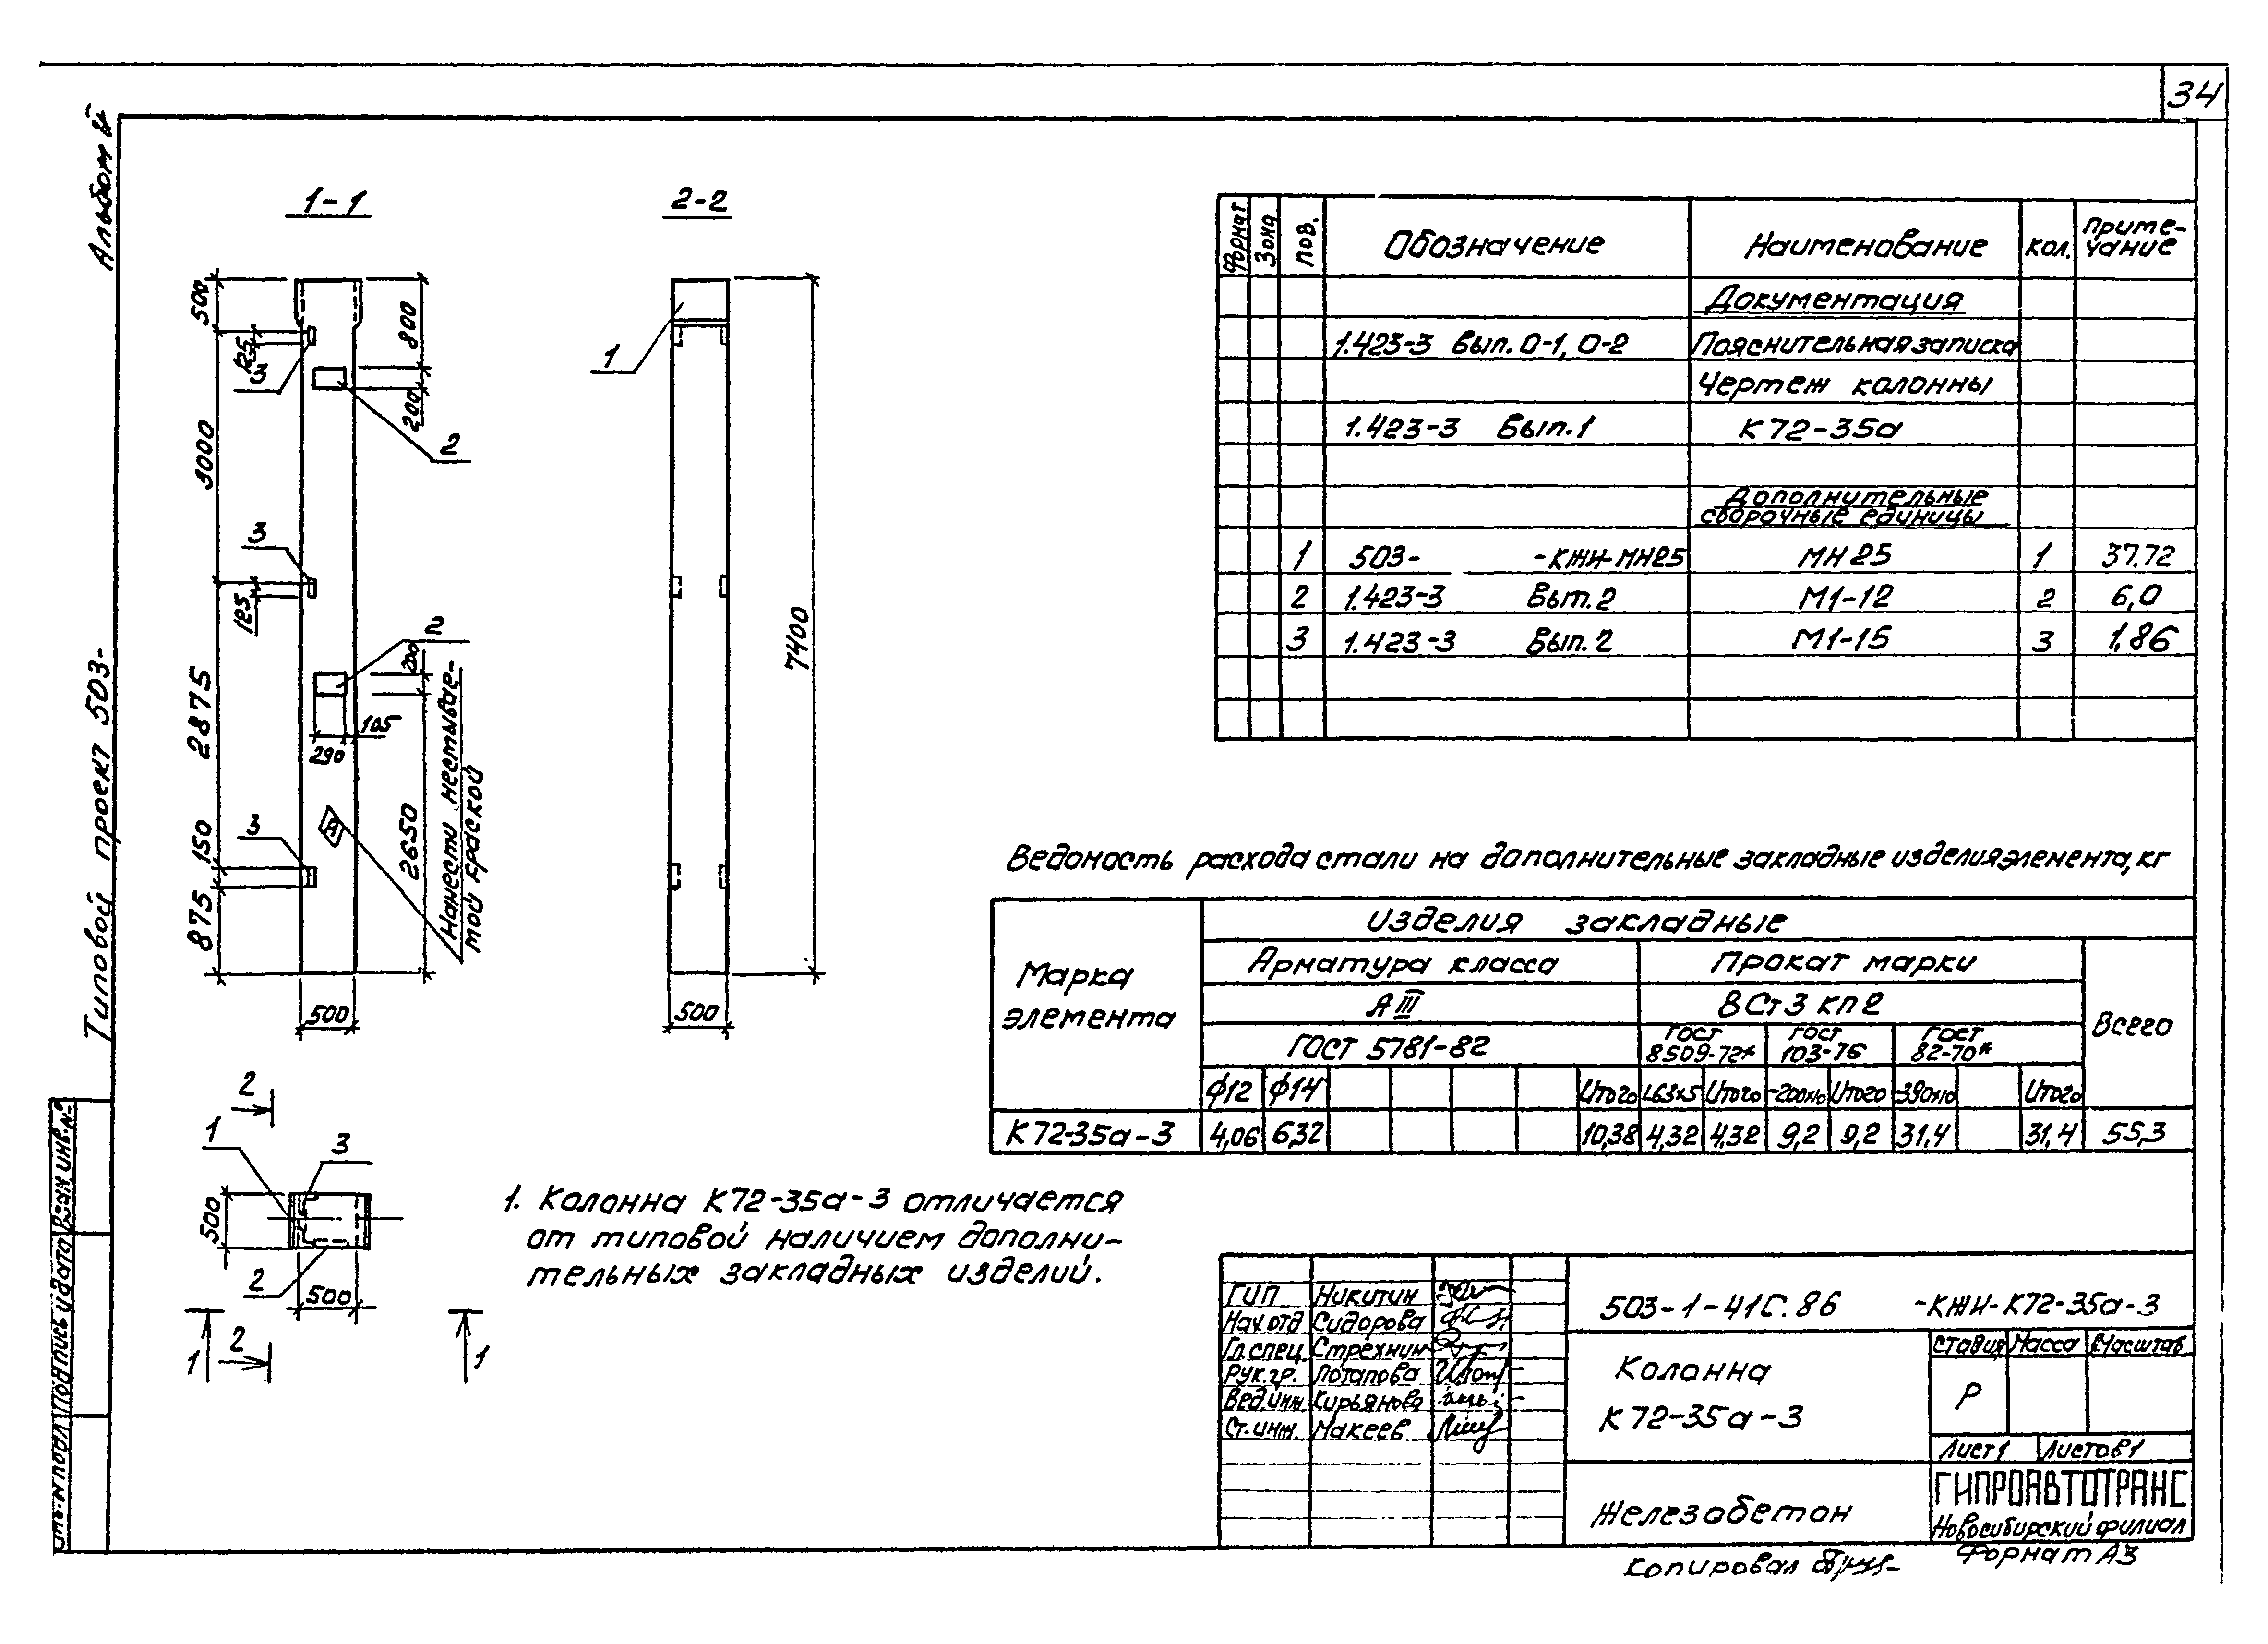 34
Альбом
Типовой проект 503-
1-1
2-2
500
125
3
800
200
2
3000
3
125
2
200
2875
290
105
150
3
2650
875
А
Нанести несмывае-
мой краской
500
1
7400
500
2
1
3
500
2
500
1
2
1
Формат
Зона
поз.
Обозначение
Наименование
кол.
Приме-
чание
Документация
1.423-3 Вып. 0-1, 0-2 Пояснительная записка
Чертеж колонны
1.423-3 Вып. 1 К72-35а
Дополнительные
сборочные единицы
1 503- -КЖИ-МН25 МН25 1 37.72
2 1.423-3 Вып. 2 М1-12 2 6,0
3 1.423-3 Вып. 2 М1-15 3 1,86
Ведомость расхода стали на дополнительные закладные изделия элемента, кг
Марка
элемента
Изделия закладные
Арматура класса
Прокат марки
Всего
АIII
ВСт3кп2
ГОСТ 5781-82
ГОСТ
8509-72*
ГОСТ
103-76
ГОСТ
82-70*
ф12 ф14 Итого L63х5 Итого -200х10 Итого -390х10 Итого
К72-35а-3 4,06 6,32 10,38 4,32 4,32 9,2 9,2 31,4 31,4 55,3
1. Колонна К72-35а-3 отличается
от типовой наличием дополни-
тельных закладных изделий.
ГИП Никитин
Нач.отд Сидорова
Гл.спец. Стрехнин
Рук.гр. Потапова
Вед.инж. Кирьянова
Ст.инж. Макеев
503-1-41С.86 -КЖИ-К72-35а-3
Колонна
К72-35а-3
Стадия Масса Масштаб
Р
Лист 1 Листов 1
Железобетон
ГИПРОАВТОТРАНС
Новосибирский филиал
Копировал
Формат А3
Взам. инв. №
Подпись и дата
Инв. № подл